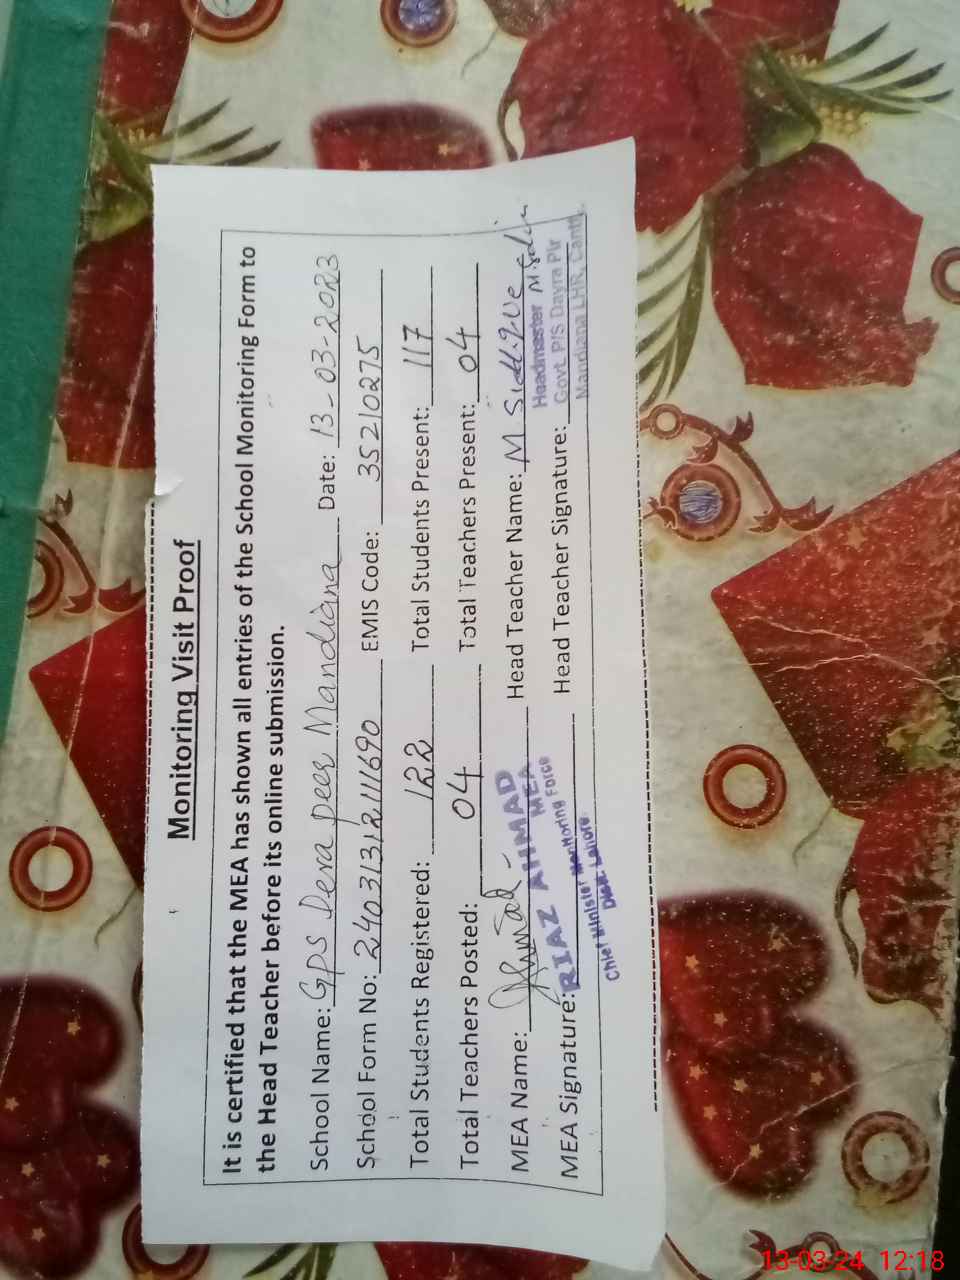 Monitoring Visit Proof
It is certified that the MEA has shown all entries of the School Monitoring Form to
the Head Teacher before its online submission.
School Name: GPS Dera peer Mandiana Date: 13-03-2023
School Form No: 2403131211690 EMIS Code: 35210275
Total Students Registered: 122 Total Students Present: 117
Total Teachers Posted: 04 Total Teachers Present: 04
MEA Name: Ahmad Head Teacher Name: M Siddique
MEA Signature: Head Teacher Signature:
RIAZ AHMAD
MEA
Chief Minister Monitoring Force
Distt. Lahore
Headmaster
Govt. P/S Dayra Pir
Mandiana LHR, Cantt.
13-03-24 12:18